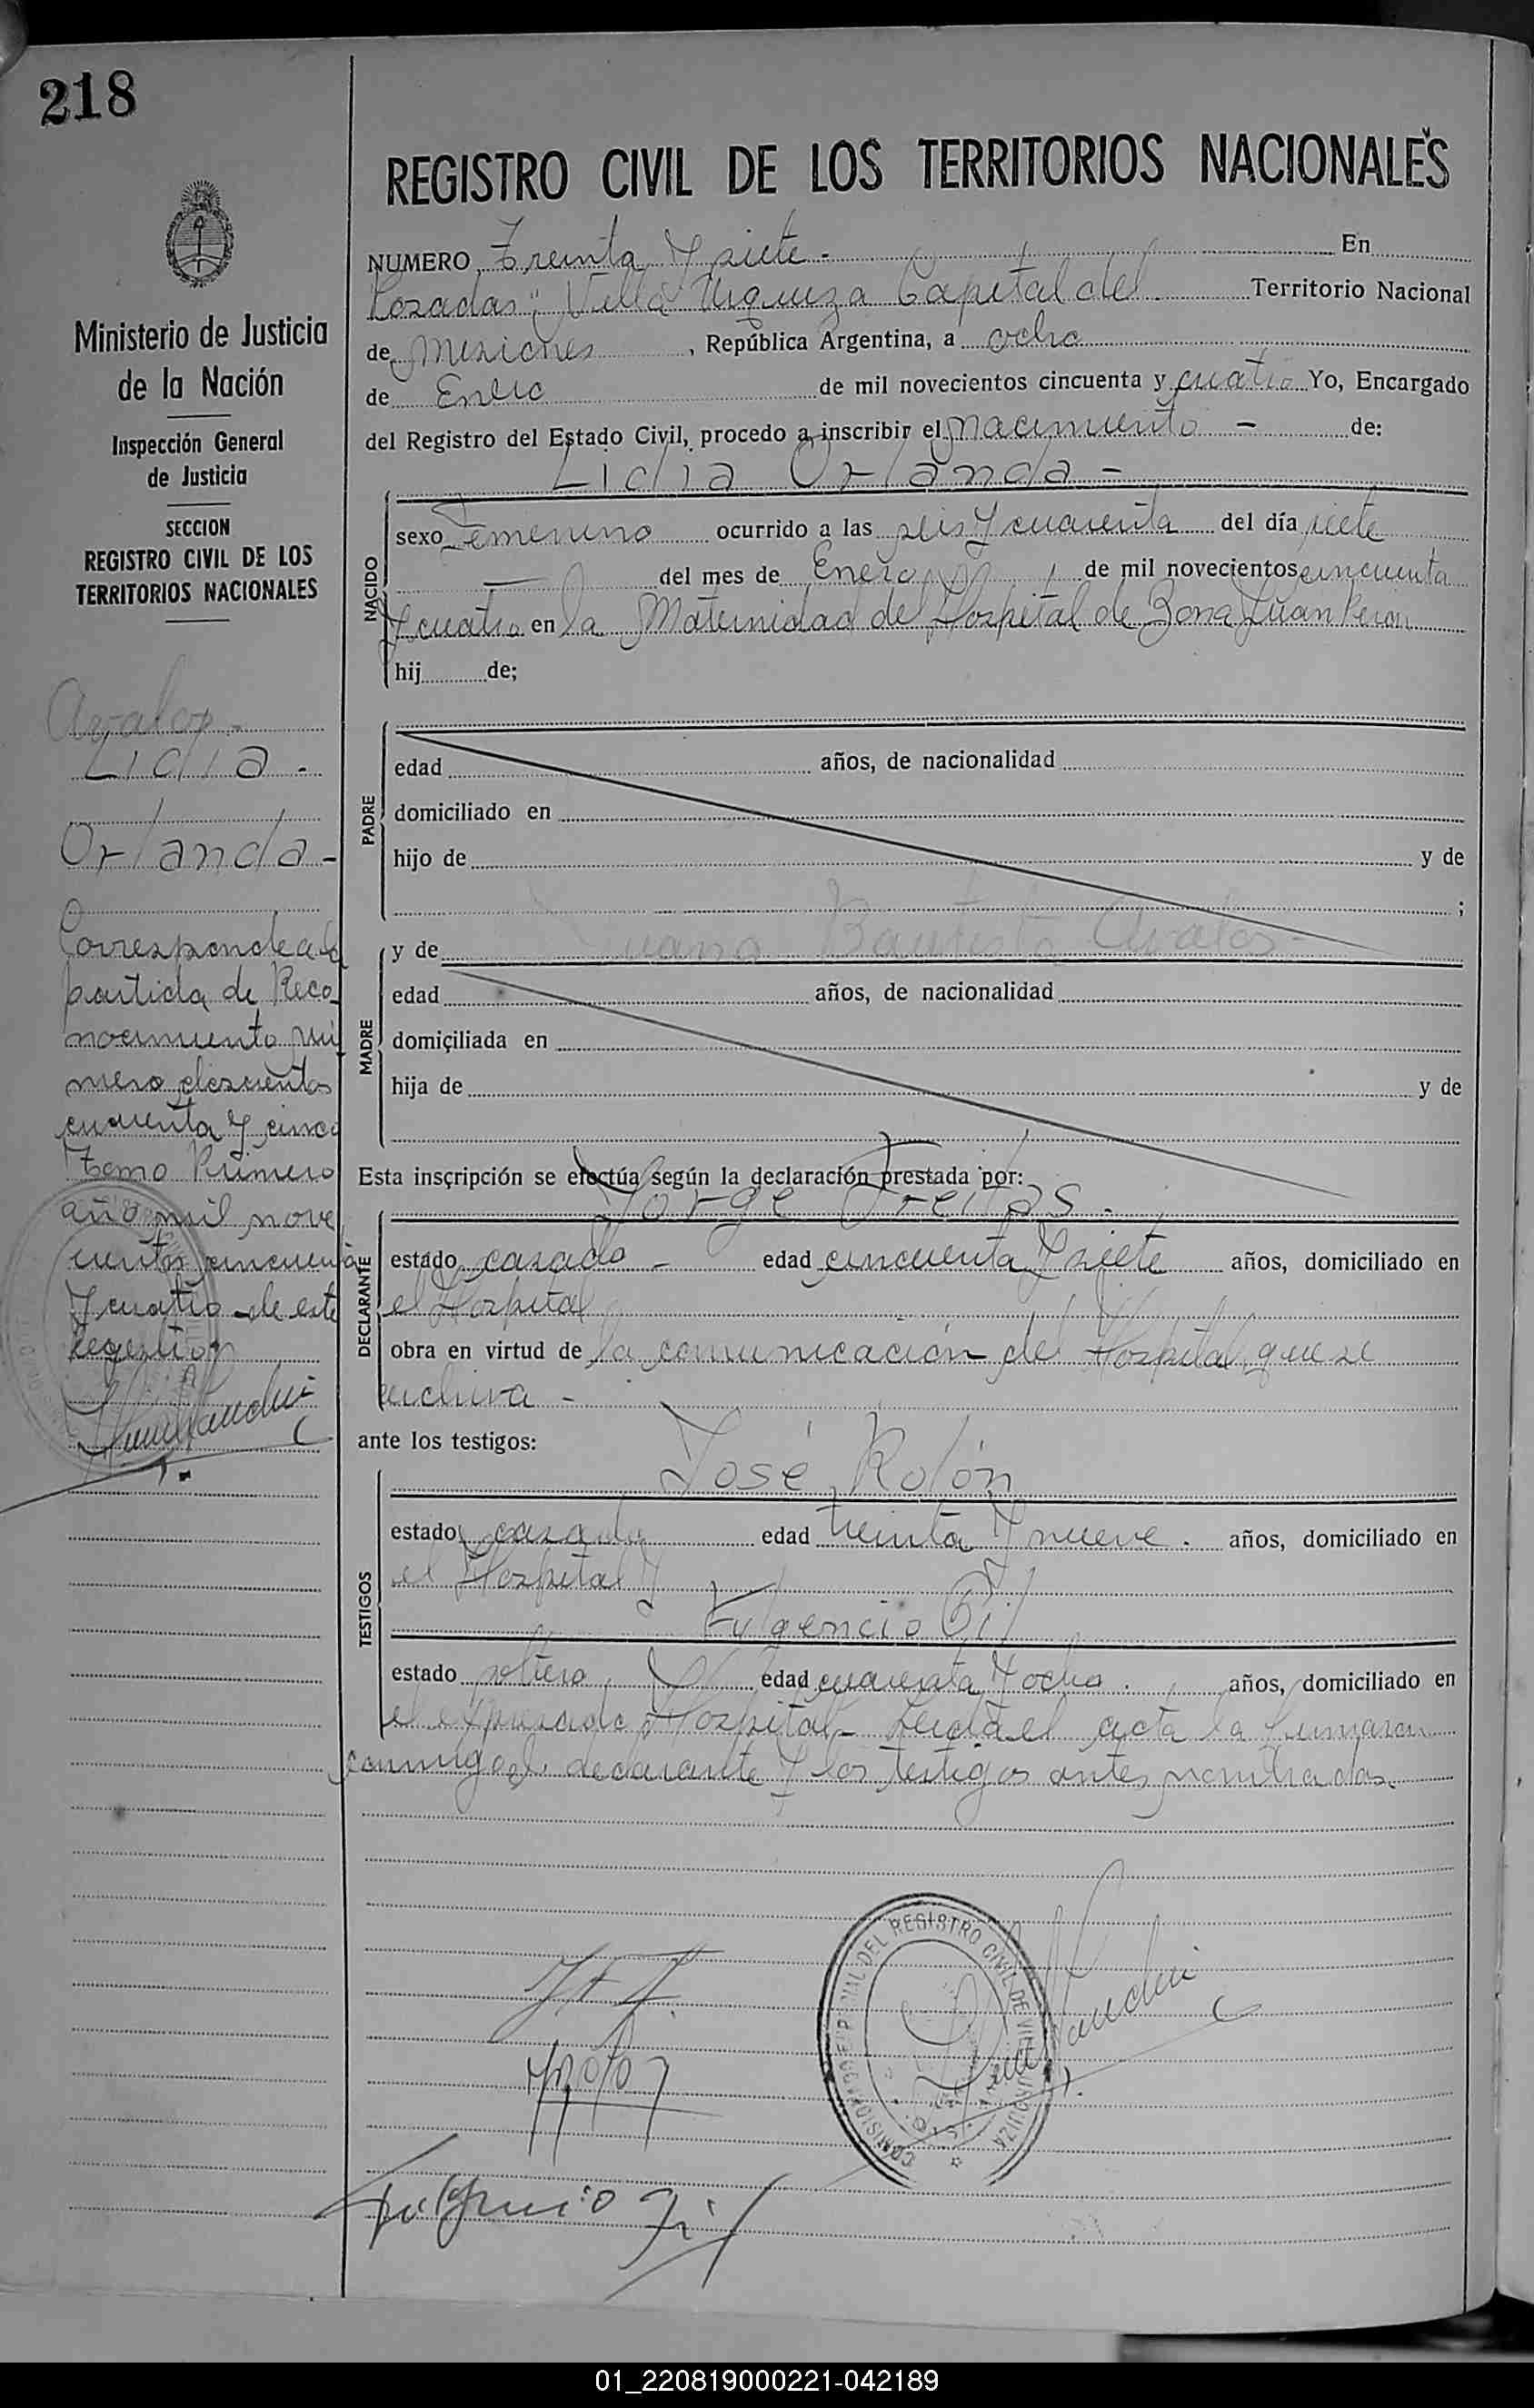 218
Ministerio de Justicia
de la Nación
Inspección General
de Justicia
SECCION
REGISTRO CIVIL DE LOS
TERRITORIOS NACIONALES
Avalos.-
Lidia.
Orlanda-
Corresponde a la
partida de Reco-
nocimiento nú
mero doscientos
cuarenta y cinco
Tomo Primero
año mil nove
cientos cincuenta
y cuatro de este
Registro
REGISTRO CIVIL DE LOS TERRITORIOS NACIONALES
NUMERO Treinta y siete.- En
Posadas, Villa Urquiza Capital del Territorio Nacional
de Misiones, República Argentina, a ocho
de Enero de mil novecientos cincuenta y cuatro Yo, Encargado
del Registro del Estado Civil, procedo a inscribir el nacimiento - de:
Lidia Orlanda-
NACIDO
sexo Femenino ocurrido a las seis y cuarenta del día siete
— del mes de Enero de mil novecientos cincuenta
y cuatro en la Maternidad del Hospital de Zona Juan Perón
hij de;
PADRE
edad años, de nacionalidad
domiciliado en
hijo de y de
;
MADRE
y de Juana Bautista Avalos-
edad años, de nacionalidad
domiciliada en
hija de y de
Esta inscripción se efectúa según la declaración prestada por:
Jorge Freitas.
DECLARANTE
estado casado - edad cincuenta y siete años, domiciliado en
el Hospital
obra en virtud de la comunicación del Hospital que se
archiva -
ante los testigos:
José Rolón
TESTIGOS
estado casado edad treinta y nueve. años, domiciliado en
el Hospital y
Fulgencio Gil
estado soltero edad cuarenta y ocho. años, domiciliado en
el expresado Hospital- Leída el acta la firmaron
conmigo el declarante y los testigos antes nombrados.
REGISTRO CIVIL DE VILLA URQUIZA
Fulgencio Gil
01_220819000221-042189